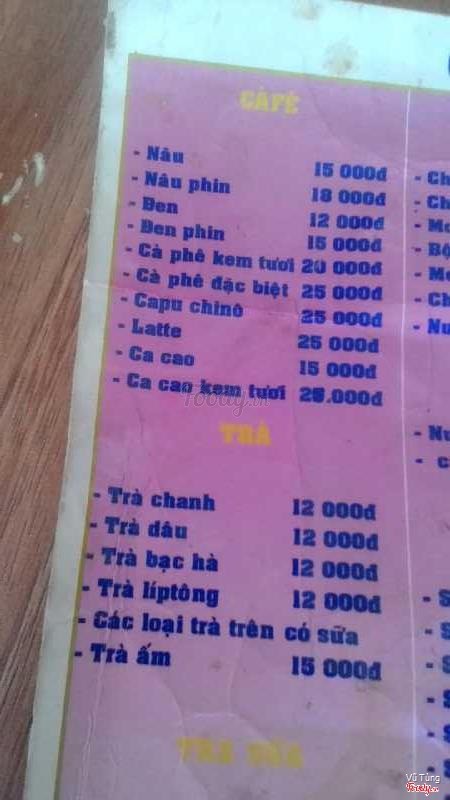 CÀFÉ
- Nâu 15 000đ
- Nâu phin 18 000đ
- Đen 12 000đ
- Đen phin 15 000đ
- Cà phê kem tươi 20 000đ
- Cà phê đặc biệt 25 000đ
- Capu chinô 25 000đ
- Latte 25 000đ
- Ca cao 15 000đ
- Ca cao kem tươi
TRÀ
- Trà chanh 12 000đ
- Trà dâu 12 000đ
- Trà bạc hà 12 000đ
- Trà líptông 12 000đ
- Các loại trà trên có sữa
- Trà ấm 15 000đ
TRÀ SỮA
- Ch
- Ch
- Mo
- Bộ
- Me
- Ch
- Nư
- Nư
- c
- S
- S
- S
- S
- S
- S
Vũ Tùng
Foody.vn